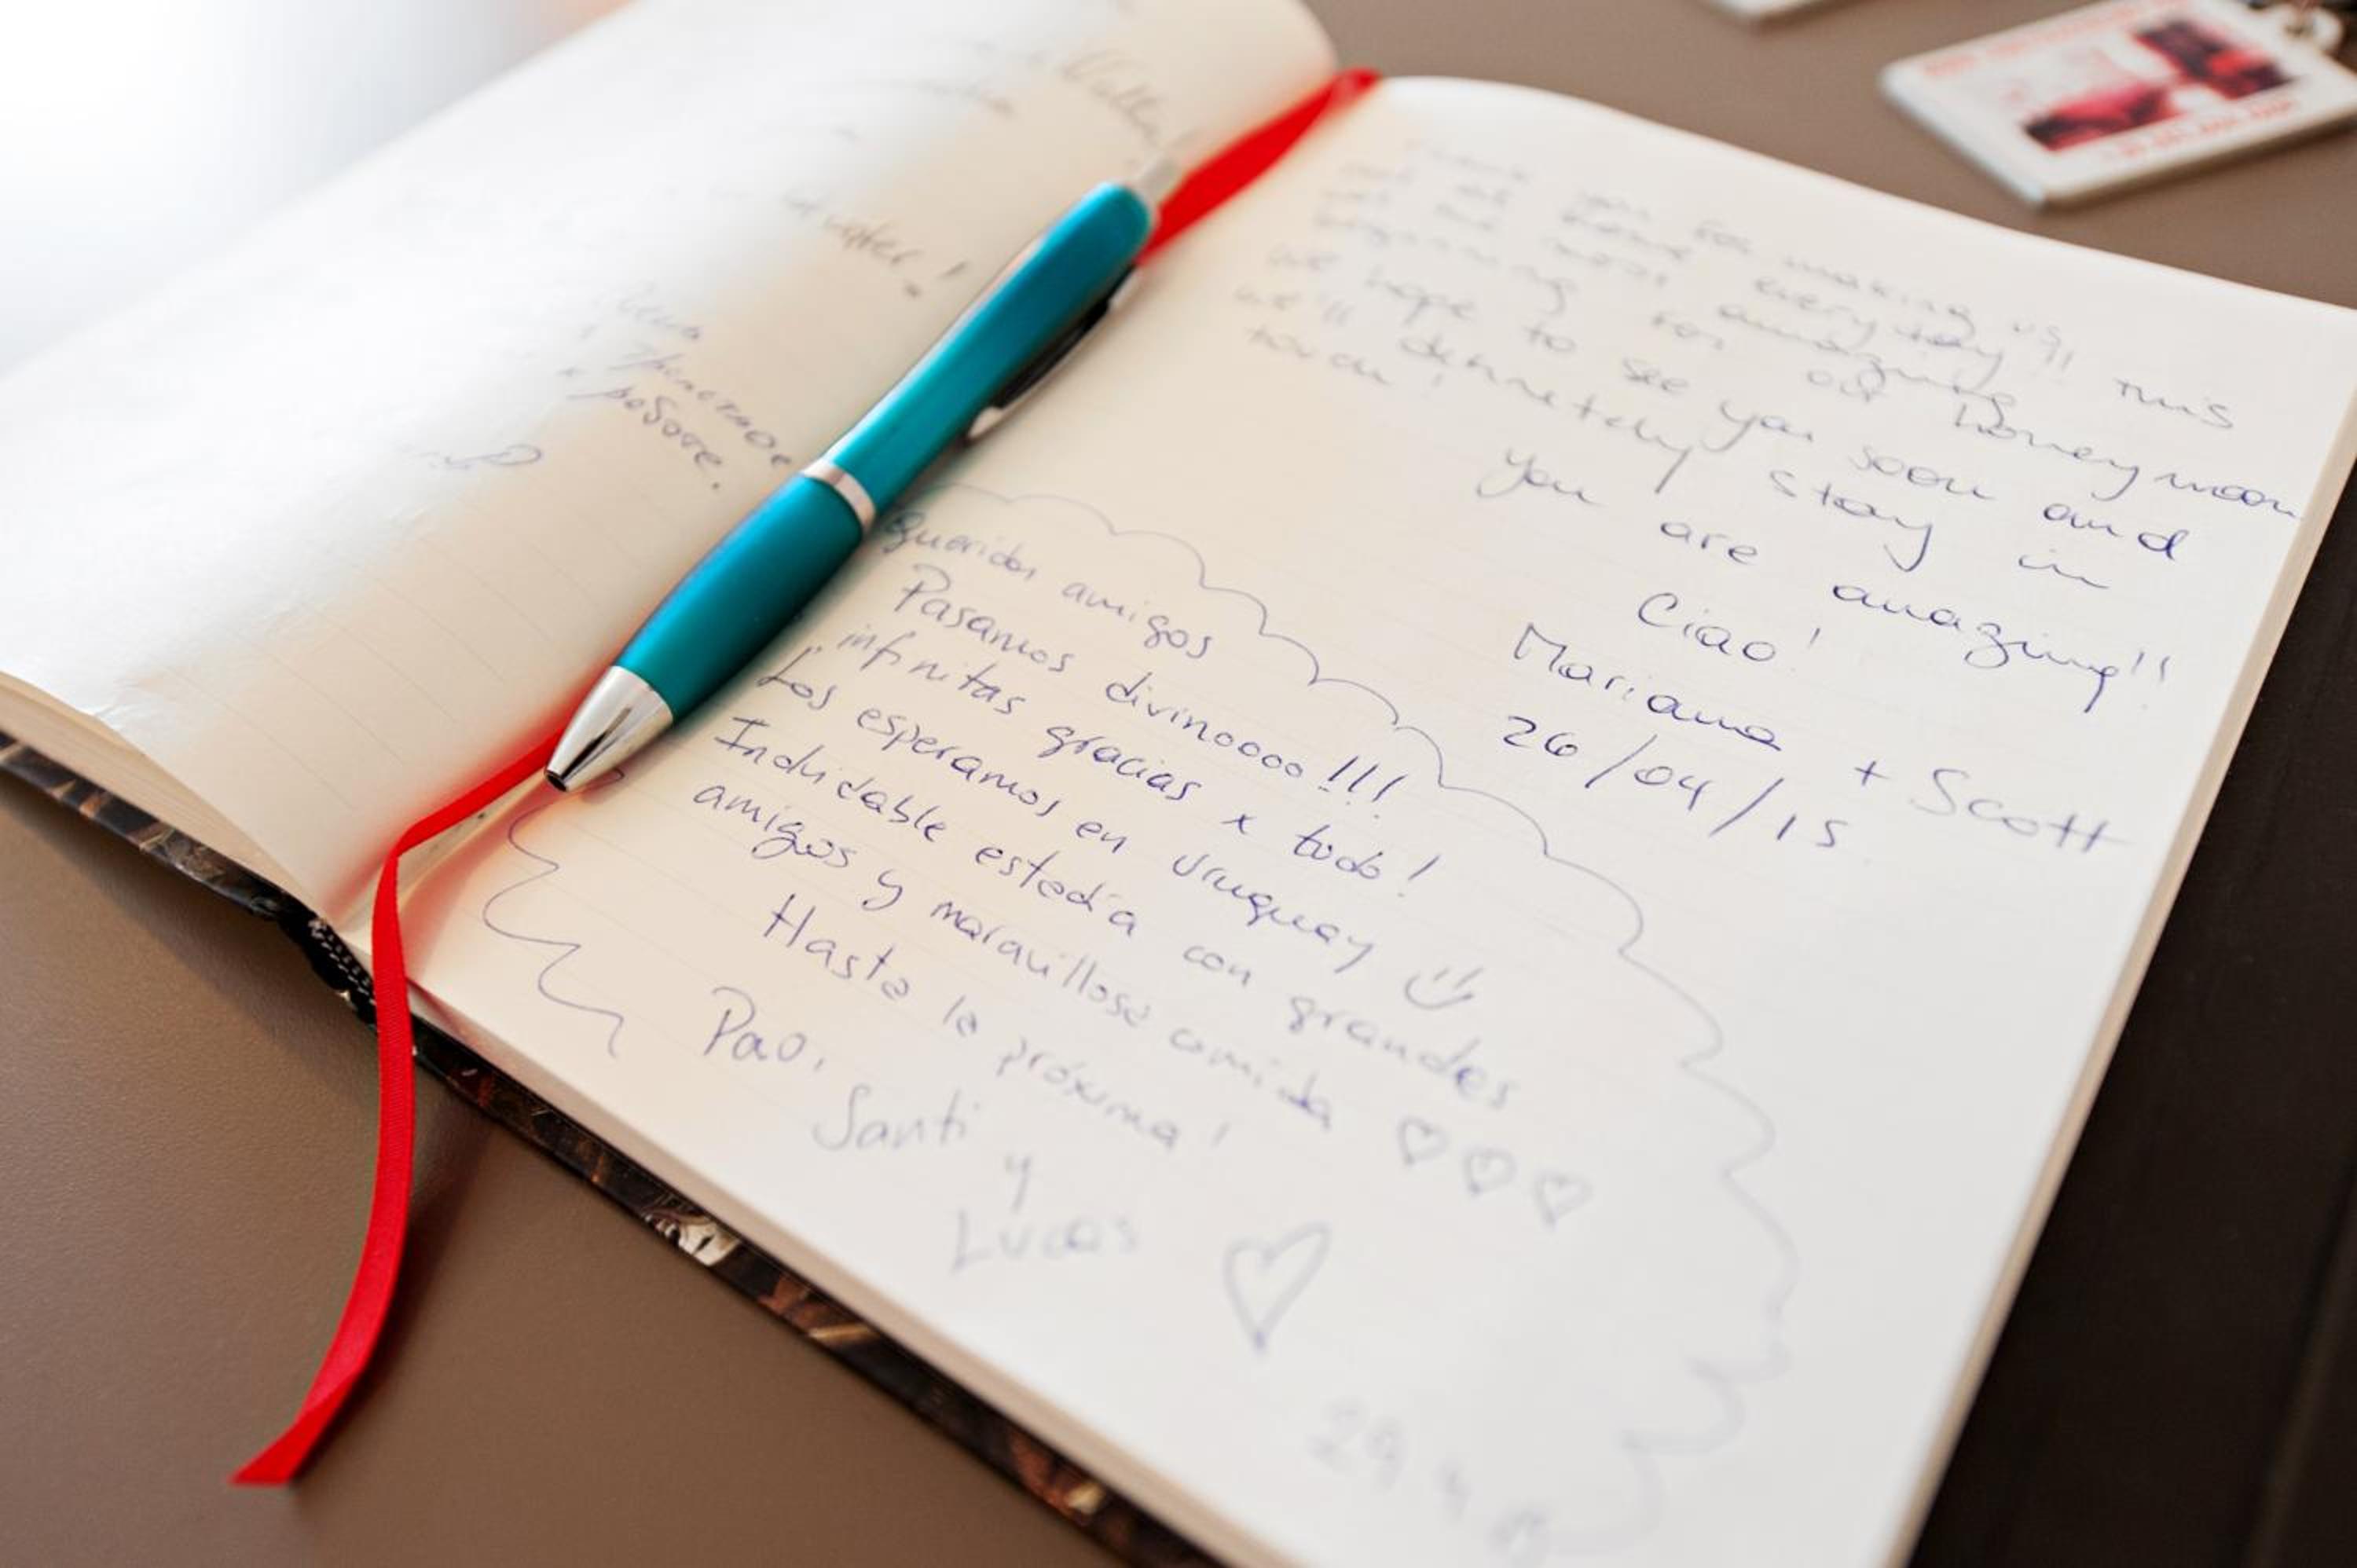 Valka!
water!
работе.
Thank you for making us
feel at home everyday!! This
was the most amazing
beginning for our honeymoon
we hope to see you soon and
we'll definetely stay in
touch!
you are amazing!!
Ciao!
Mariana + Scott
26/04/15
Queridos amigos
Pasamos divinoooo!!!
infinitas gracias x todo!
Los esperamos en Uruguay
Induidable estadía con grandes
amigos y maravillosa comida ♡♡♡
Hasta la próxima!
Pao,
Santi
y
Lucas
29.4.15